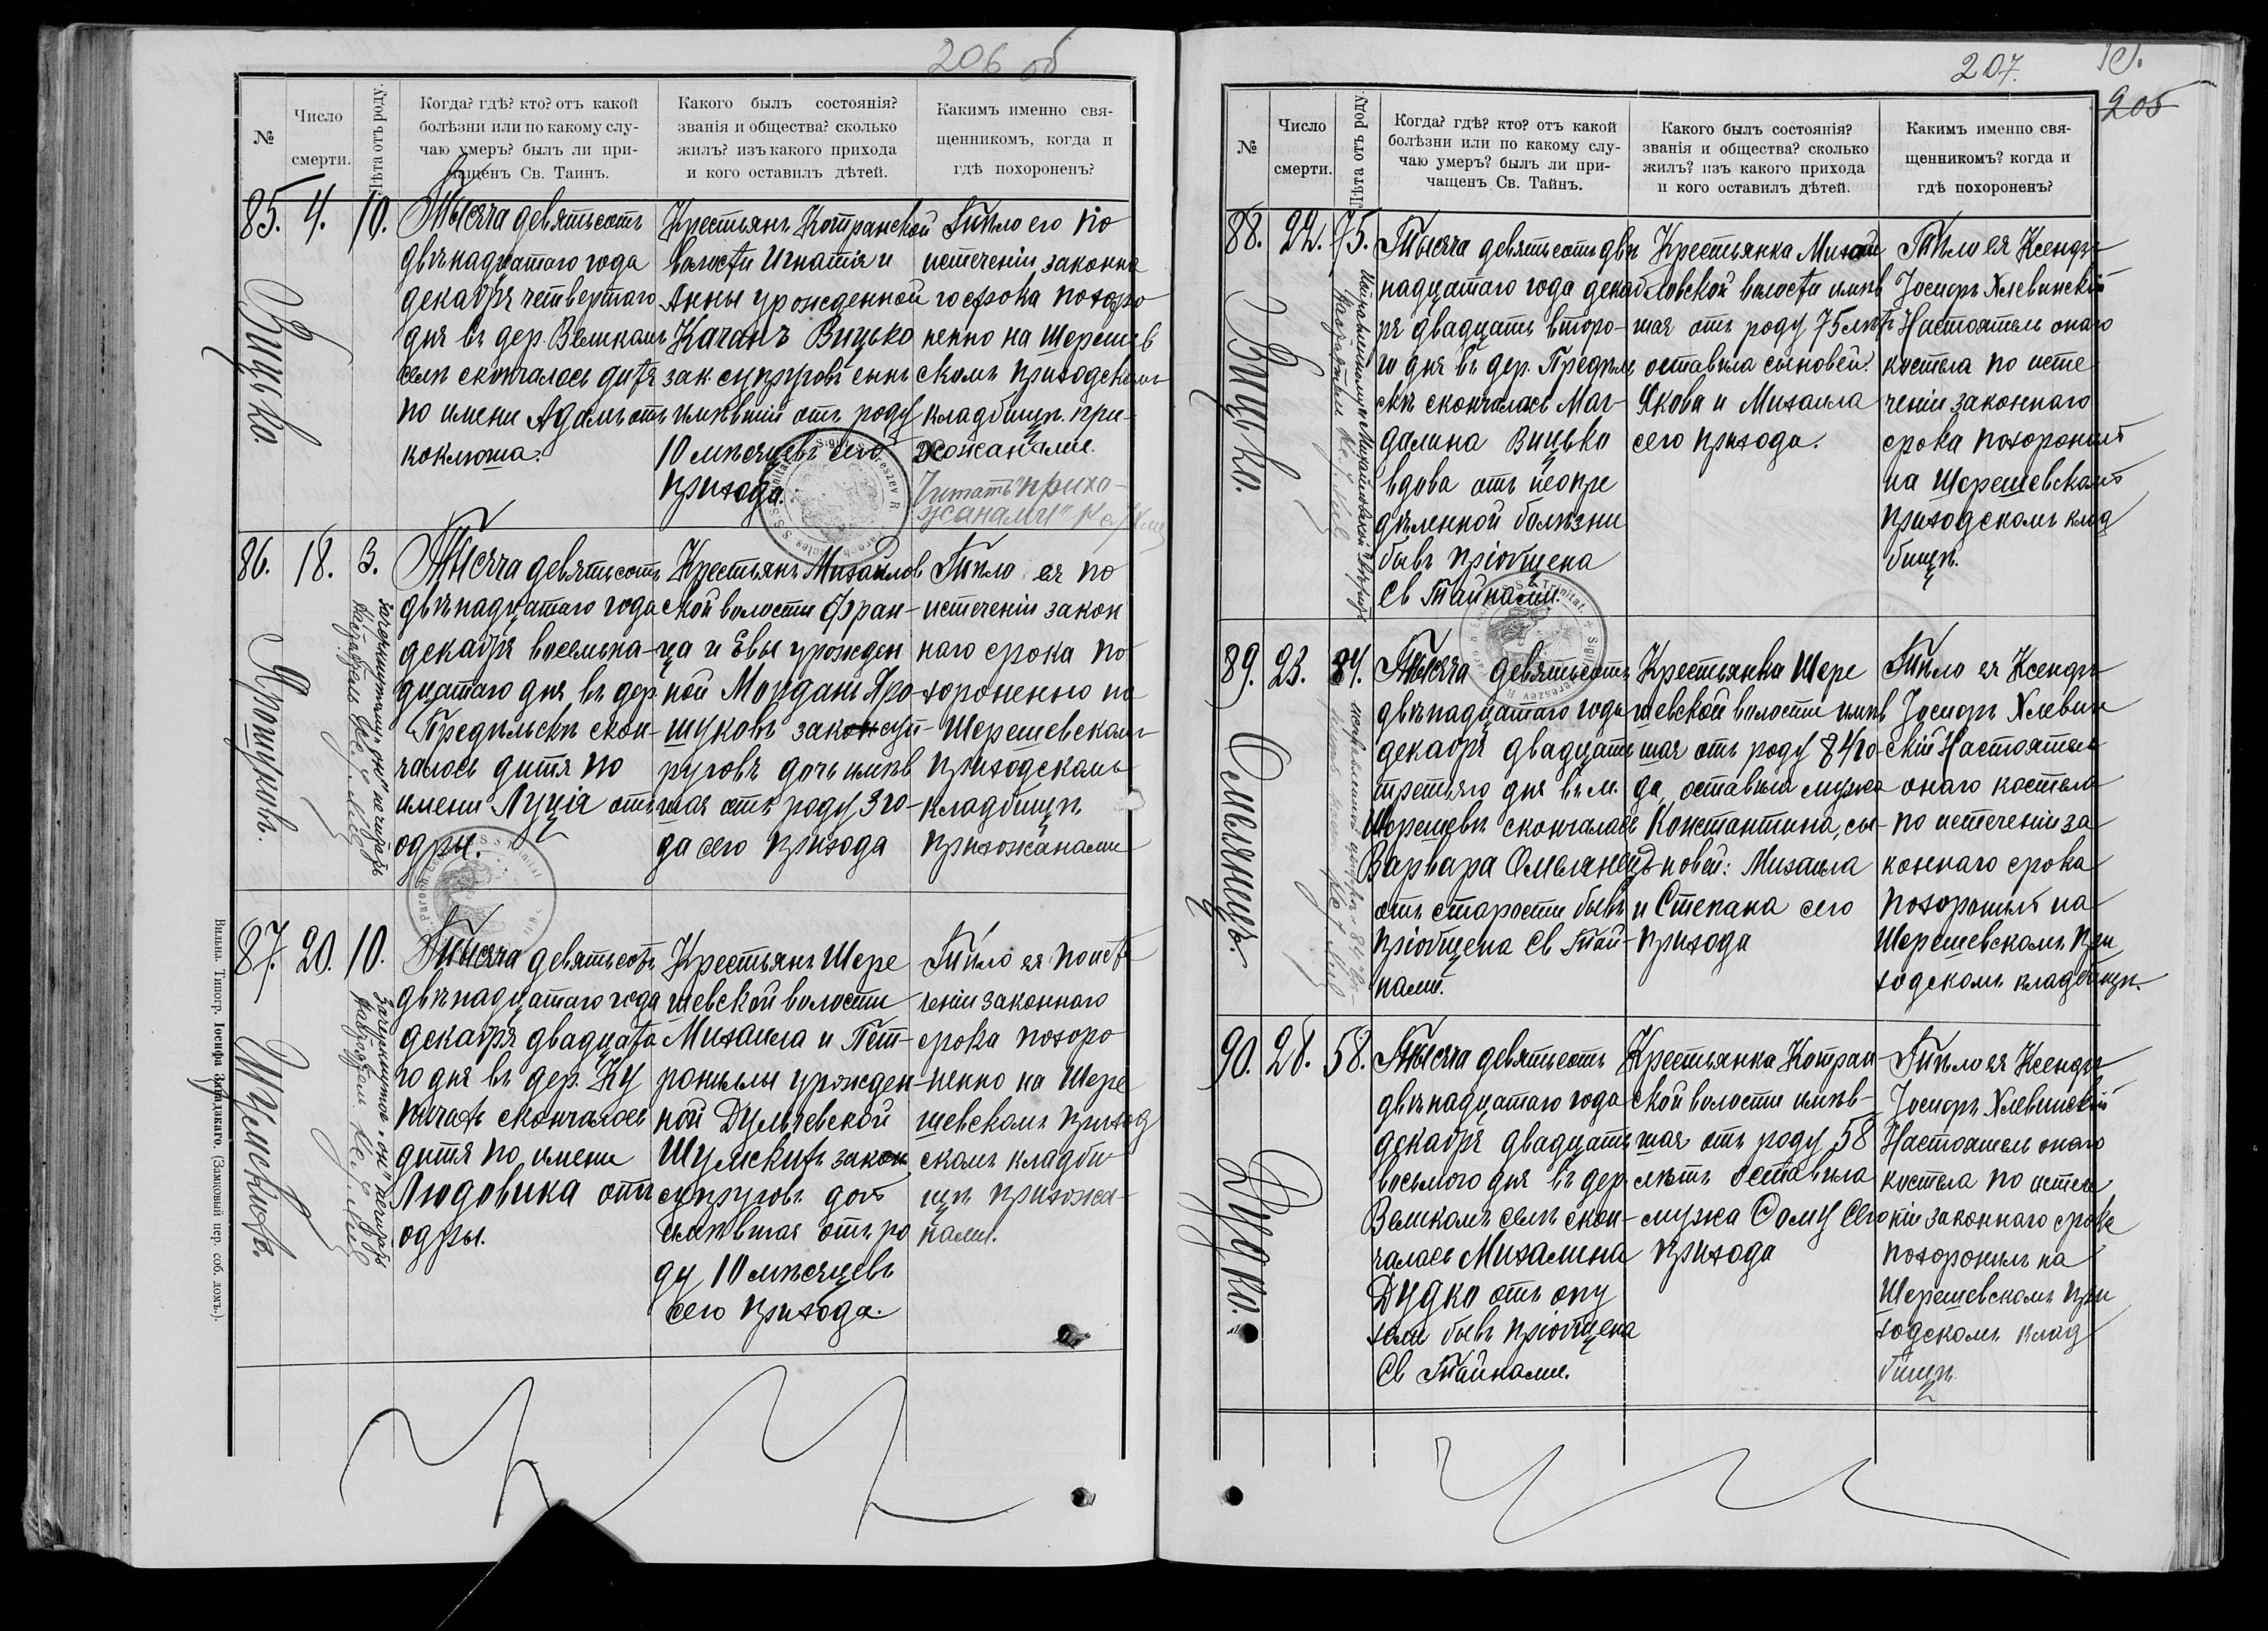 206 об
№
Число
смерти.
Лѣта отъ роду.
Когда? гдѣ? кто? отъ какой
болѣзни или по какому слу-
чаю умеръ? былъ ли при-
чащенъ Св. Таинъ.
Какого былъ состоянія?
званія и общества? сколько
жилъ? изъ какого прихода
и кого оставилъ дѣтей.
Какимъ именно свя-
щенникомъ, когда и
гдѣ похороненъ?
85. 4. 10.
Вицько.
Тысяча девятьсотъ
двѣнадцатаго года
декабря четвертаго
дня въ дер. Великомъ
селѣ скончалось дитя
по имени Адамъ отъ
коклюша.
Крестьянъ Котранской
волости Игнатія и
Анны урожденной
Качанъ Вицько
зак. супруговъ сынъ
имѣвшій отъ роду
10 мѣсяцевъ сего
прихода.
Тѣло его по
истеченіи законна
го срока похоро
ненно на Шерешев
скомъ приходскомъ
кладбищѣ при-
хожанами.
Читать "прихо-
жанами"
86. 18. 3.
Ярошукъ.
Тысяча девятьсотъ
двѣнадцатаго года
декабря восемьна-
дцатаго дня въ дер
Предѣльскѣ скон-
чалось дитя по
имени Луція отъ
одры.
Крестьянъ Михайлов
ской волости Фран-
ца и Евы урожден
ной Мордань Яро
шуковъ закон суп-
руговъ дочь имѣв
шая отъ роду 3 го-
да сего прихода
Тѣло ея по
истеченіи закон
наго срока по
хороненно на
Шерешевскомъ
приходскомъ
кладбищѣ
прихожанами
87. 20. 10.
Шумскихъ.
Тысяча девятьсотъ
двѣнадцатаго года
декабря двадцата
го дня въ дер. Ку
пичахъ скончалось
дитя по имени
Людовика отъ
одры.
Крестьянъ Шере
шевской волости
Михаила и Пет-
ронелы урожден-
ной Дулычевской
Шумскихъ закон
супруговъ дочь
имѣвшая отъ ро
ду 10 мѣсяцевъ
сего прихода.
Тѣло ея по исте
ченіи законнаго
срока похоро
ненно на Шере
шевскомъ приход
скомъ кладби
щѣ прихожа-
нами.
Вильна. Типогр. Іосифа Завадзкаго. (Замковый пер. соб. домъ.).
207.
205
№
Число
смерти.
Лѣта отъ роду.
Когда? гдѣ? кто? отъ какой
болѣзни или по какому слу-
чаю умеръ? былъ ли при-
чащенъ Св. Тайнъ.
Какого былъ состоянія?
званія и общества? сколько
жилъ? изъ какого прихода
и кого оставилъ дѣтей.
Какимъ именно свя-
щенникомъ? когда и
гдѣ похороненъ?
88. 22. 75.
Вицько.
Тысяча девятьсотъ двѣ
надцатаго года декаб
ря двадцать второ-
го дня въ дер. Предѣль
скѣ скончалась Маг-
далина Вицько
вдова отъ неопре
дѣленной болѣзни
бывъ пріобщена
Св Тайнами.
Крестьянка Михай
ловской волости имѣв
шая отъ роду 75 лѣтъ
оставила сыновей:
Якова и Михаила
сего прихода.
Тѣло ея Ксендзъ
Іосифъ Хлевинскій
Настоятель онаго
костела по исте
ченіи законнаго
срока похоронилъ
на Шерешевскомъ
приходскомъ клад
бищѣ.
89. 23. 84.
Омелянецъ.
Тысяча девятьсотъ
двѣнадцатаго года
декабря двадцать
третьяго дня въ м.
Шерешевѣ скончалась
Варвара Омелянецъ
отъ старости бывъ
пріобщена Св Тай-
нами.
Крестьянка Шере
шевской волости имѣв
шая отъ роду 84 го-
да, оставила мужа
Константина, сы-
новей: Михаила
и Степана сего
прихода
Тѣло ея Ксендзъ
Іосифъ Хлевин
скій Настоятель
онаго костела
по истеченіи за
коннаго срока
похоронилъ на
Шерешевскомъ при
ходскомъ кладбищѣ.
90. 28. 58.
Дудко.
Тысяча девятьсотъ
двѣнадцатаго года
декабря двадцать
восьмого дня въ дер
Великомъ селѣ скон-
чалась Михалина
Дудко отъ опу
холи бывъ пріобщена
Св Тайнами.
Крестьянка Котран
ской волости имѣв-
шая отъ роду 58
лѣтъ оставила
мужа Ѳому сего
прихода
Тѣло ея Ксендзъ
Іосифъ Хлевинскій
Настоятель онаго
костела по истече
ніи законнаго срока
похоронилъ на
Шерешевскомъ при
ходскомъ клад
бищѣ.